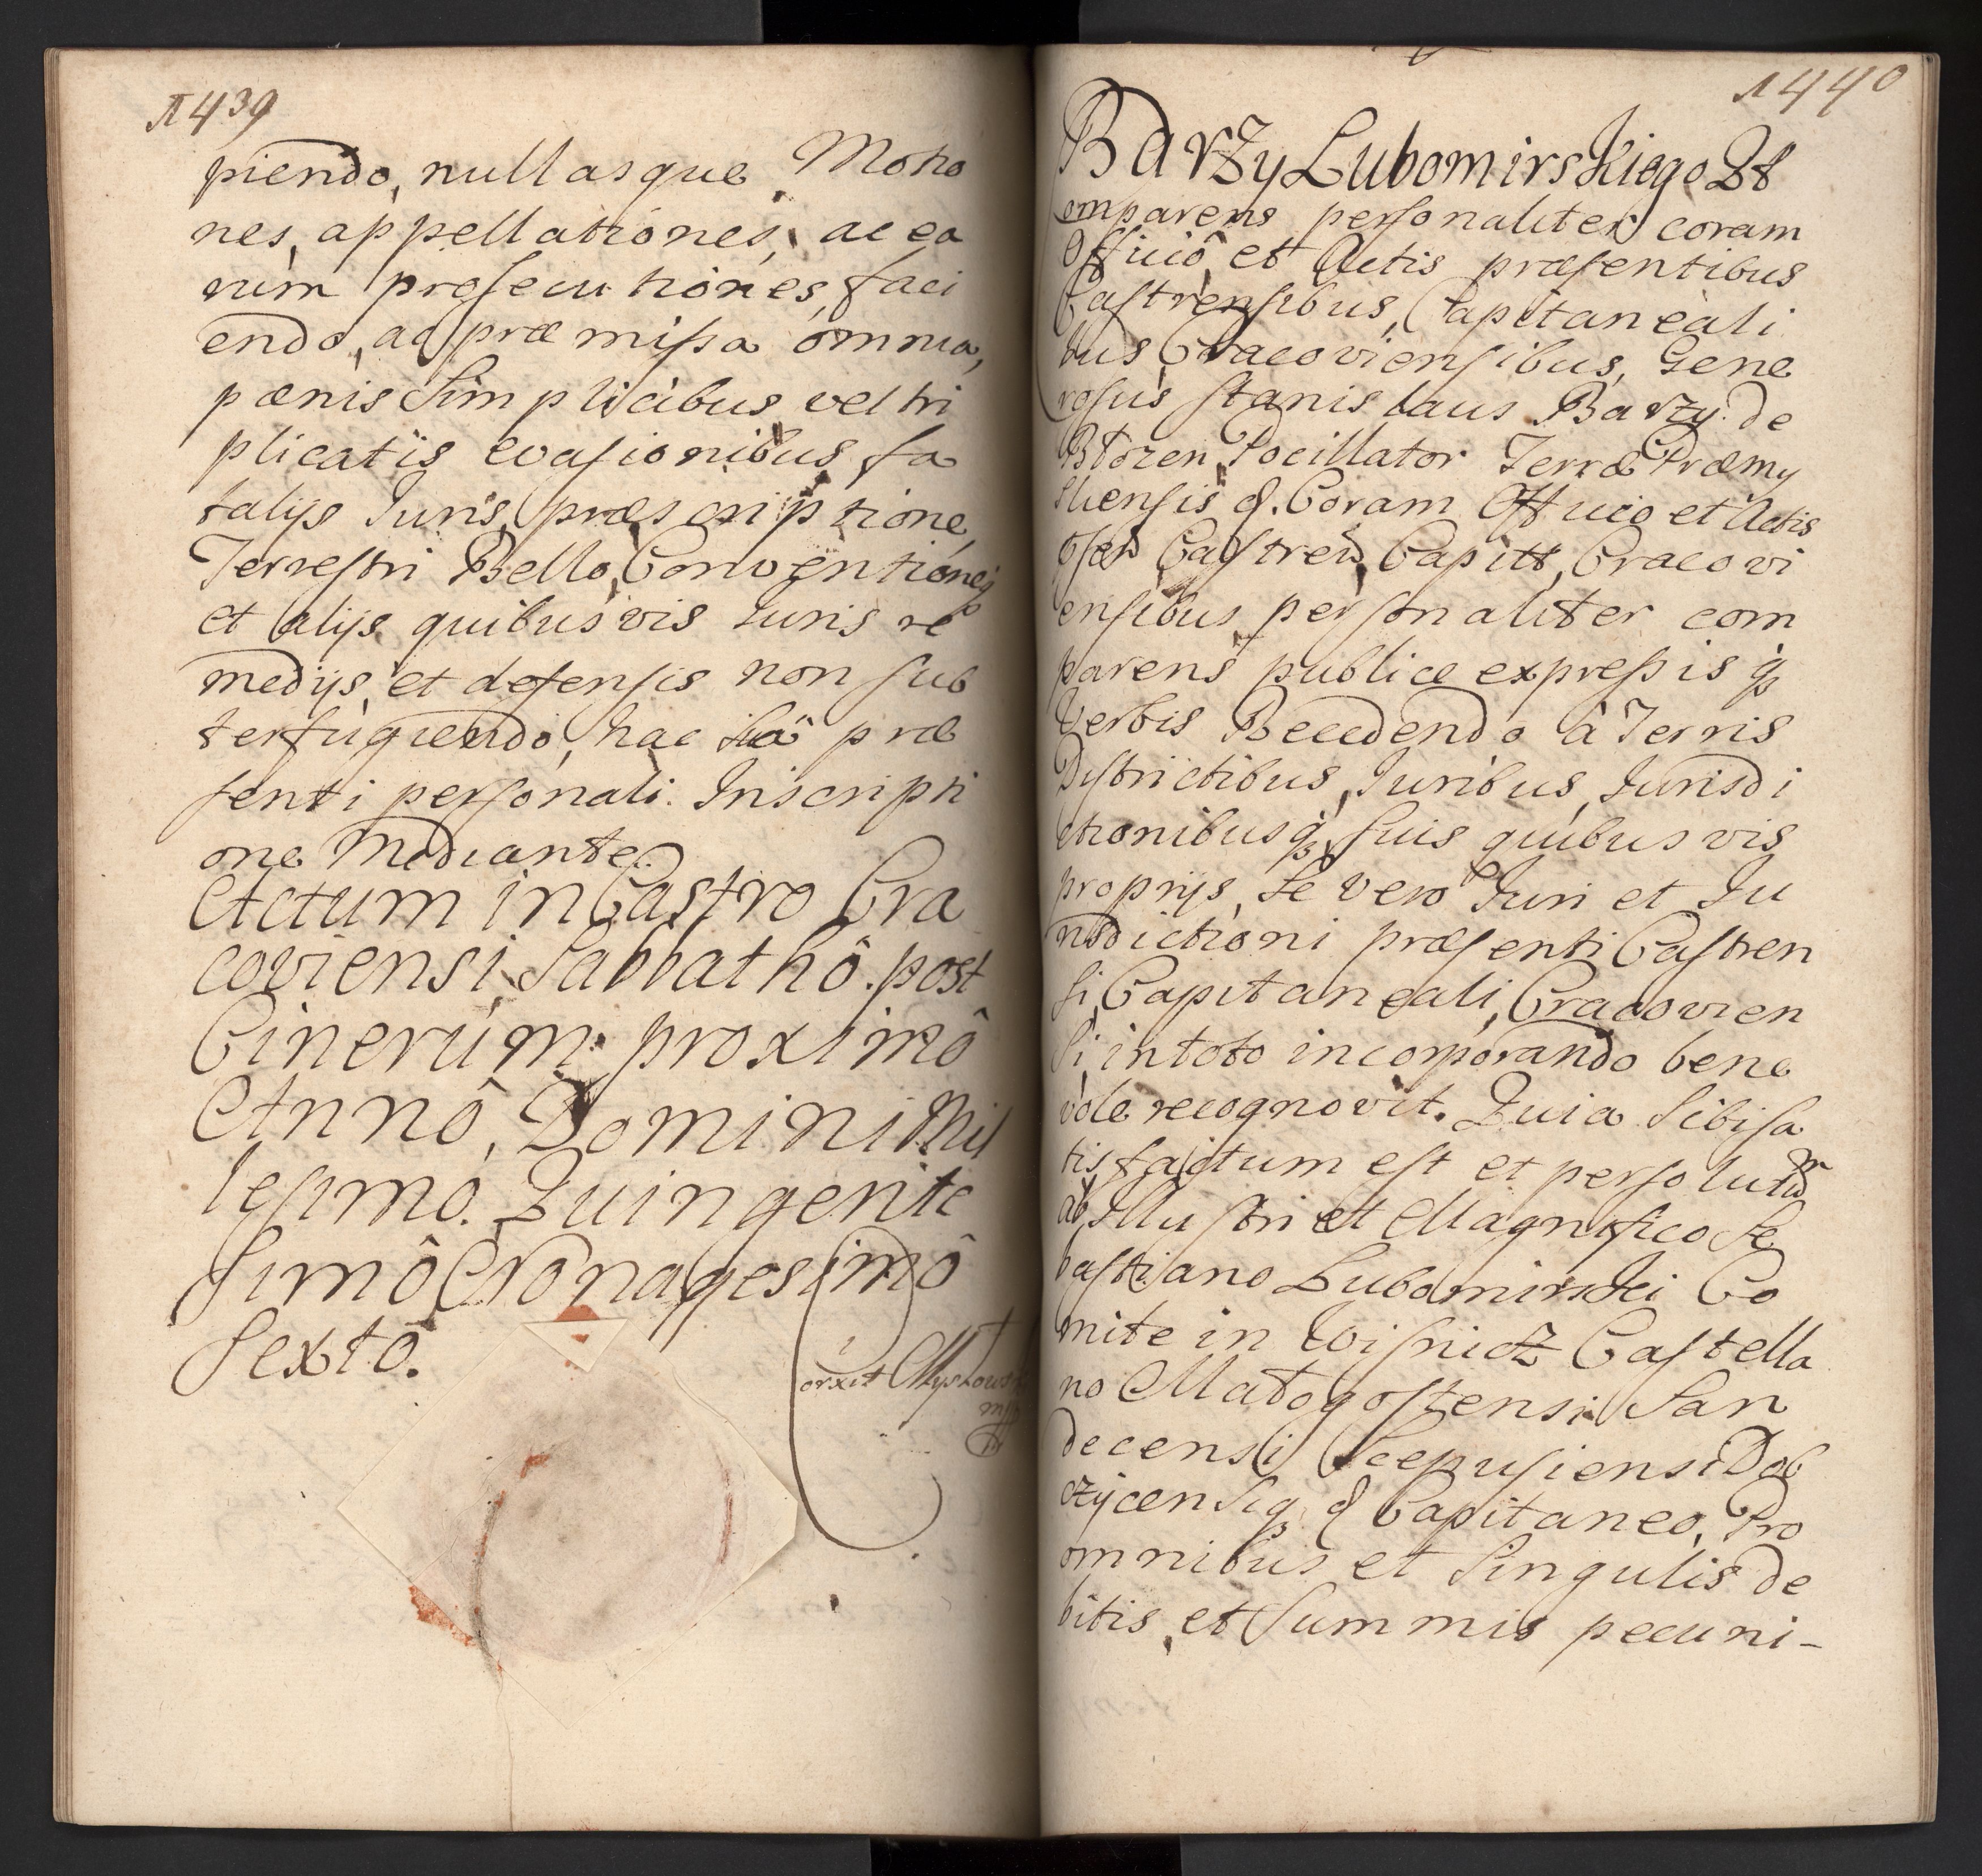 1439
piendo, nullasque Motio
nes, appellationes, ac ea
rum prosecutiones, faci
endo, ac præmissa omnia,
pænis Simplicibus vel tri
plicatis evasionibus fa
talijs Juris præscriptione,
Terrestri Bello, Conventiones
et alijs quibusvis Juris re
medijs, et defensis non sub
terfugiendo, hac suâ præ
senti personali Inscripti
one Mediante.
Actum in Castro Cra
coviensi, Sabbathô post
Cinerum proximô
Annô, Domini Mil
lesimo. Quingente
Simô Nonagesimô
Sextô.
Myszkows
mp
1440
Barzy Lubomirskiego Qt
omparens personaliter coram
Officiô et Actis præsentibus
Castrensibus, Capitaneali
bus Cracoviensibus, Gene
rosus Stanislaus Barzy de
Błozen Pocillator Terræ Præmy
sliensis &. Coram Officio et Actis
Castren Capitt, Cracovi
ensibus personaliter com
parens publice expressis q3
Verbis Recedendo à Terris
Districtibus, Juribus, Jurisdi
ctionibusq3 suis quibusvis
proprijs, Se vero Juri et Ju
risdictioni præsenti Castren
si, Capitaneali, Cracovien
si, in toto incorporando bene
vole recognovit. Quia Sibi sa
tisfactum est et persolutum
ab Illustri et Magnifico Se
bastiano Lubomirski Co
mite in Wisnicz Castella
no Małogostensi San
decensi Scepusiensi Dob
czycensiq3 & Capitaneo, Pro
omnibus et Singulis de
bitis, et Summis pecuni-